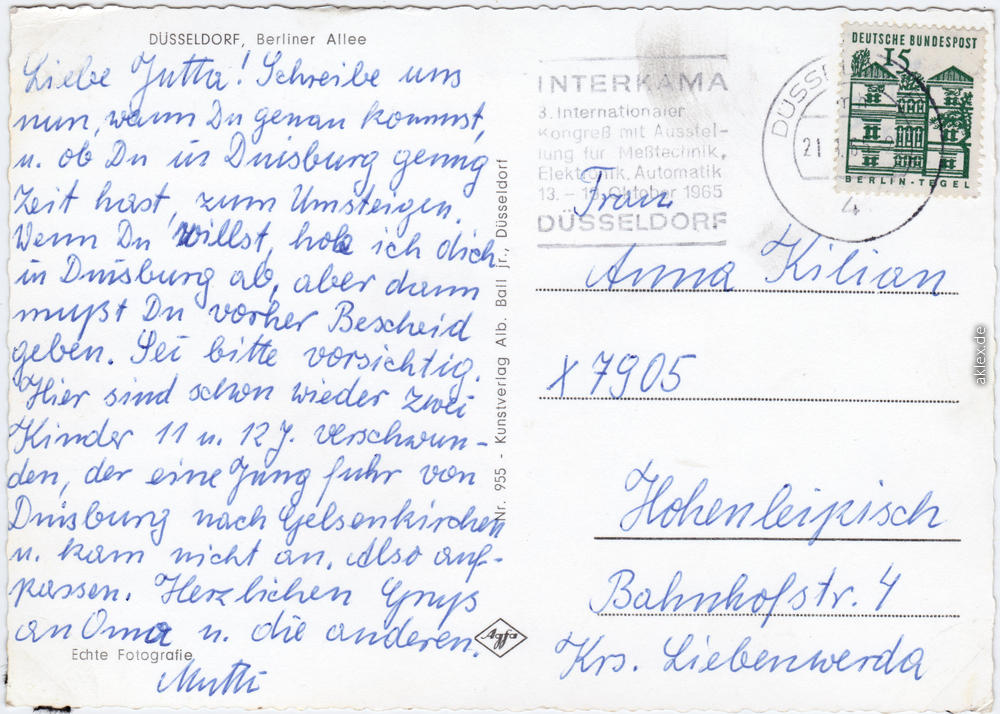 DÜSSELDORF, Berliner Allee
Liebe Jutta! Schreibe uns
nun, wann Du genau kommst,
u. ob Du in Duisburg genug
Zeit hast, zum Umsteigen.
Wenn Du willst, hole ich dich
in Duisburg ab, aber dann
mußt Du vorher Bescheid
geben. Sei bitte vorsichtig.
Hier sind schon wieder zwei
Kinder 11 u. 12 J. verschwun-
den, der eine Jung fuhr von
Duisburg nach Gelsenkirchen
u. kam nicht an. Also auf-
passen. Herzlichen Gruß
an Oma u. die anderen.
Mutti
Echte Fotografie
Nr. 955 - Kunstverlag Alb. Ball jr., Düsseldorf
Agfa
INTERKAMA
3. Internationaler
Kongreß mit Ausstel-
lung für Meßtechnik,
Elektronik, Automatik
13. – 19. Oktober 1965
DÜSSELDORF
4
DEUTSCHE BUNDESPOST
15
BERLIN-TEGEL
Frau
Anna Kilian
X 7905
Hohenleipisch
Bahnhofstr. 4
Krs. Liebenwerda
aklex.de